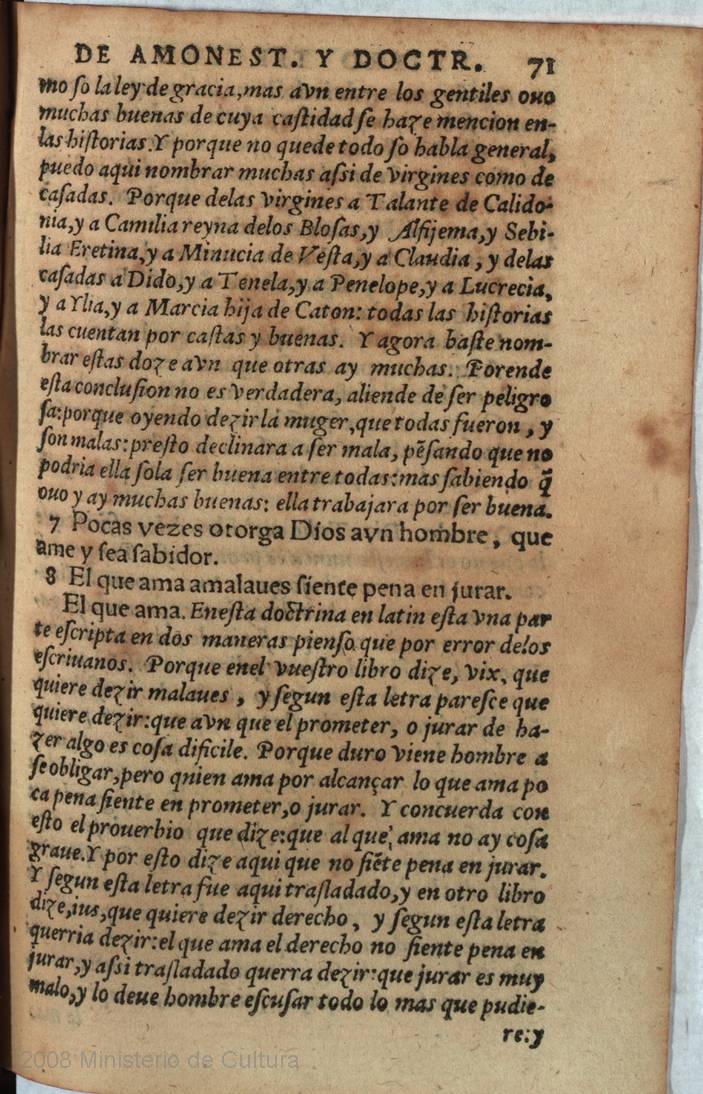 DE AMONEST. Y DOCTR. 71
mo ſo la ley de gracia, mas avn entre los gentiles ouo
muchas buenas de cuya caſtidad ſe haze mencion en-
las hiſtorias. Y porque no quede todo ſo habla general,
puedo aqui nombrar muchas aſsi de virgines como de
caſadas. Porque delas virgines a Talante de Calido-
nia, y a Camilia reyna delos Bloſas, y Alfijema, y Sebi-
lia Eretina, y a Minucia de Veſta, y a Claudia, y delas
caſadas a Dido, y a Tenela, y a Penelope, y a Lucrecia,
y a Ylia, y a Marcia hija de Caton: todas las hiſtorias
las cuentan por caſtas y buenas. Y agora baſte nom-
brar eſtas doze avn que otras ay muchas. Porende
eſta concluſion no es verdadera, aliende de ſer peligro
ſa: porque oyendo dezir la muger, que todas fueron, y
ſon malas: preſto declinara a ſer mala, pẽſando que no
podria ella ſola ſer buena entre todas: mas ſabiendo q̃
ouo y ay muchas buenas: ella trabajara por ſer buena.
7 Pocas vezes otorga Dios avn hombre, que
ame y ſea ſabidor.
8 El que ama amalaues ſiente pena en jurar.
El que ama. Eneſta doctrina en latin eſta vna par
te eſcripta en dos maneras pienſo que por error delos
eſcriuanos. Porque enel vueſtro libro dize, vix, que
quiere dezir malaues, y ſegun eſta letra pareſce que
quiere dezir: que avn que el prometer, o jurar de ha-
zer algo es coſa dificile. Porque duro viene hombre a
ſe obligar, pero quien ama por alcançar lo que ama po
ca pena ſiente en prometer, o jurar. Y concuerda con
eſto el prouerbio que dize: que al que ama no ay coſa
graue. Y por eſto dize aqui que no ſiẽte pena en jurar.
Y ſegun eſta letra fue aqui traſladado, y en otro libro
dize, ius, que quiere dezir derecho, y ſegun eſta letra
querria dezir: el que ama el derecho no ſiente pena en
jurar, y aſsi traſladado querra dezir: que jurar es muy
malo, y lo deue hombre eſcuſar todo lo mas que pudie-
re: y
2008 Ministerio de Cultura